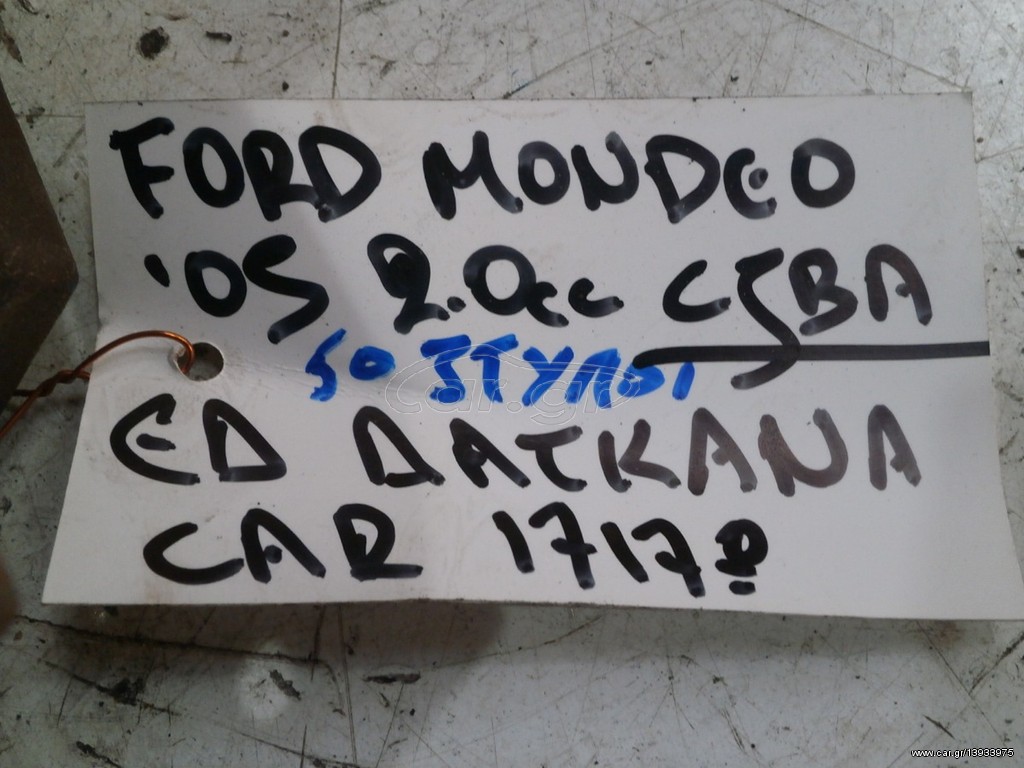 FORD MONDEO
'05 2.0cc CJBA
SO ΣΤΥΛΟΙ
ΕΔ ΔΑΓΚΑΝΑ
CAR 17178
car.gr
www.car.gr/13933975